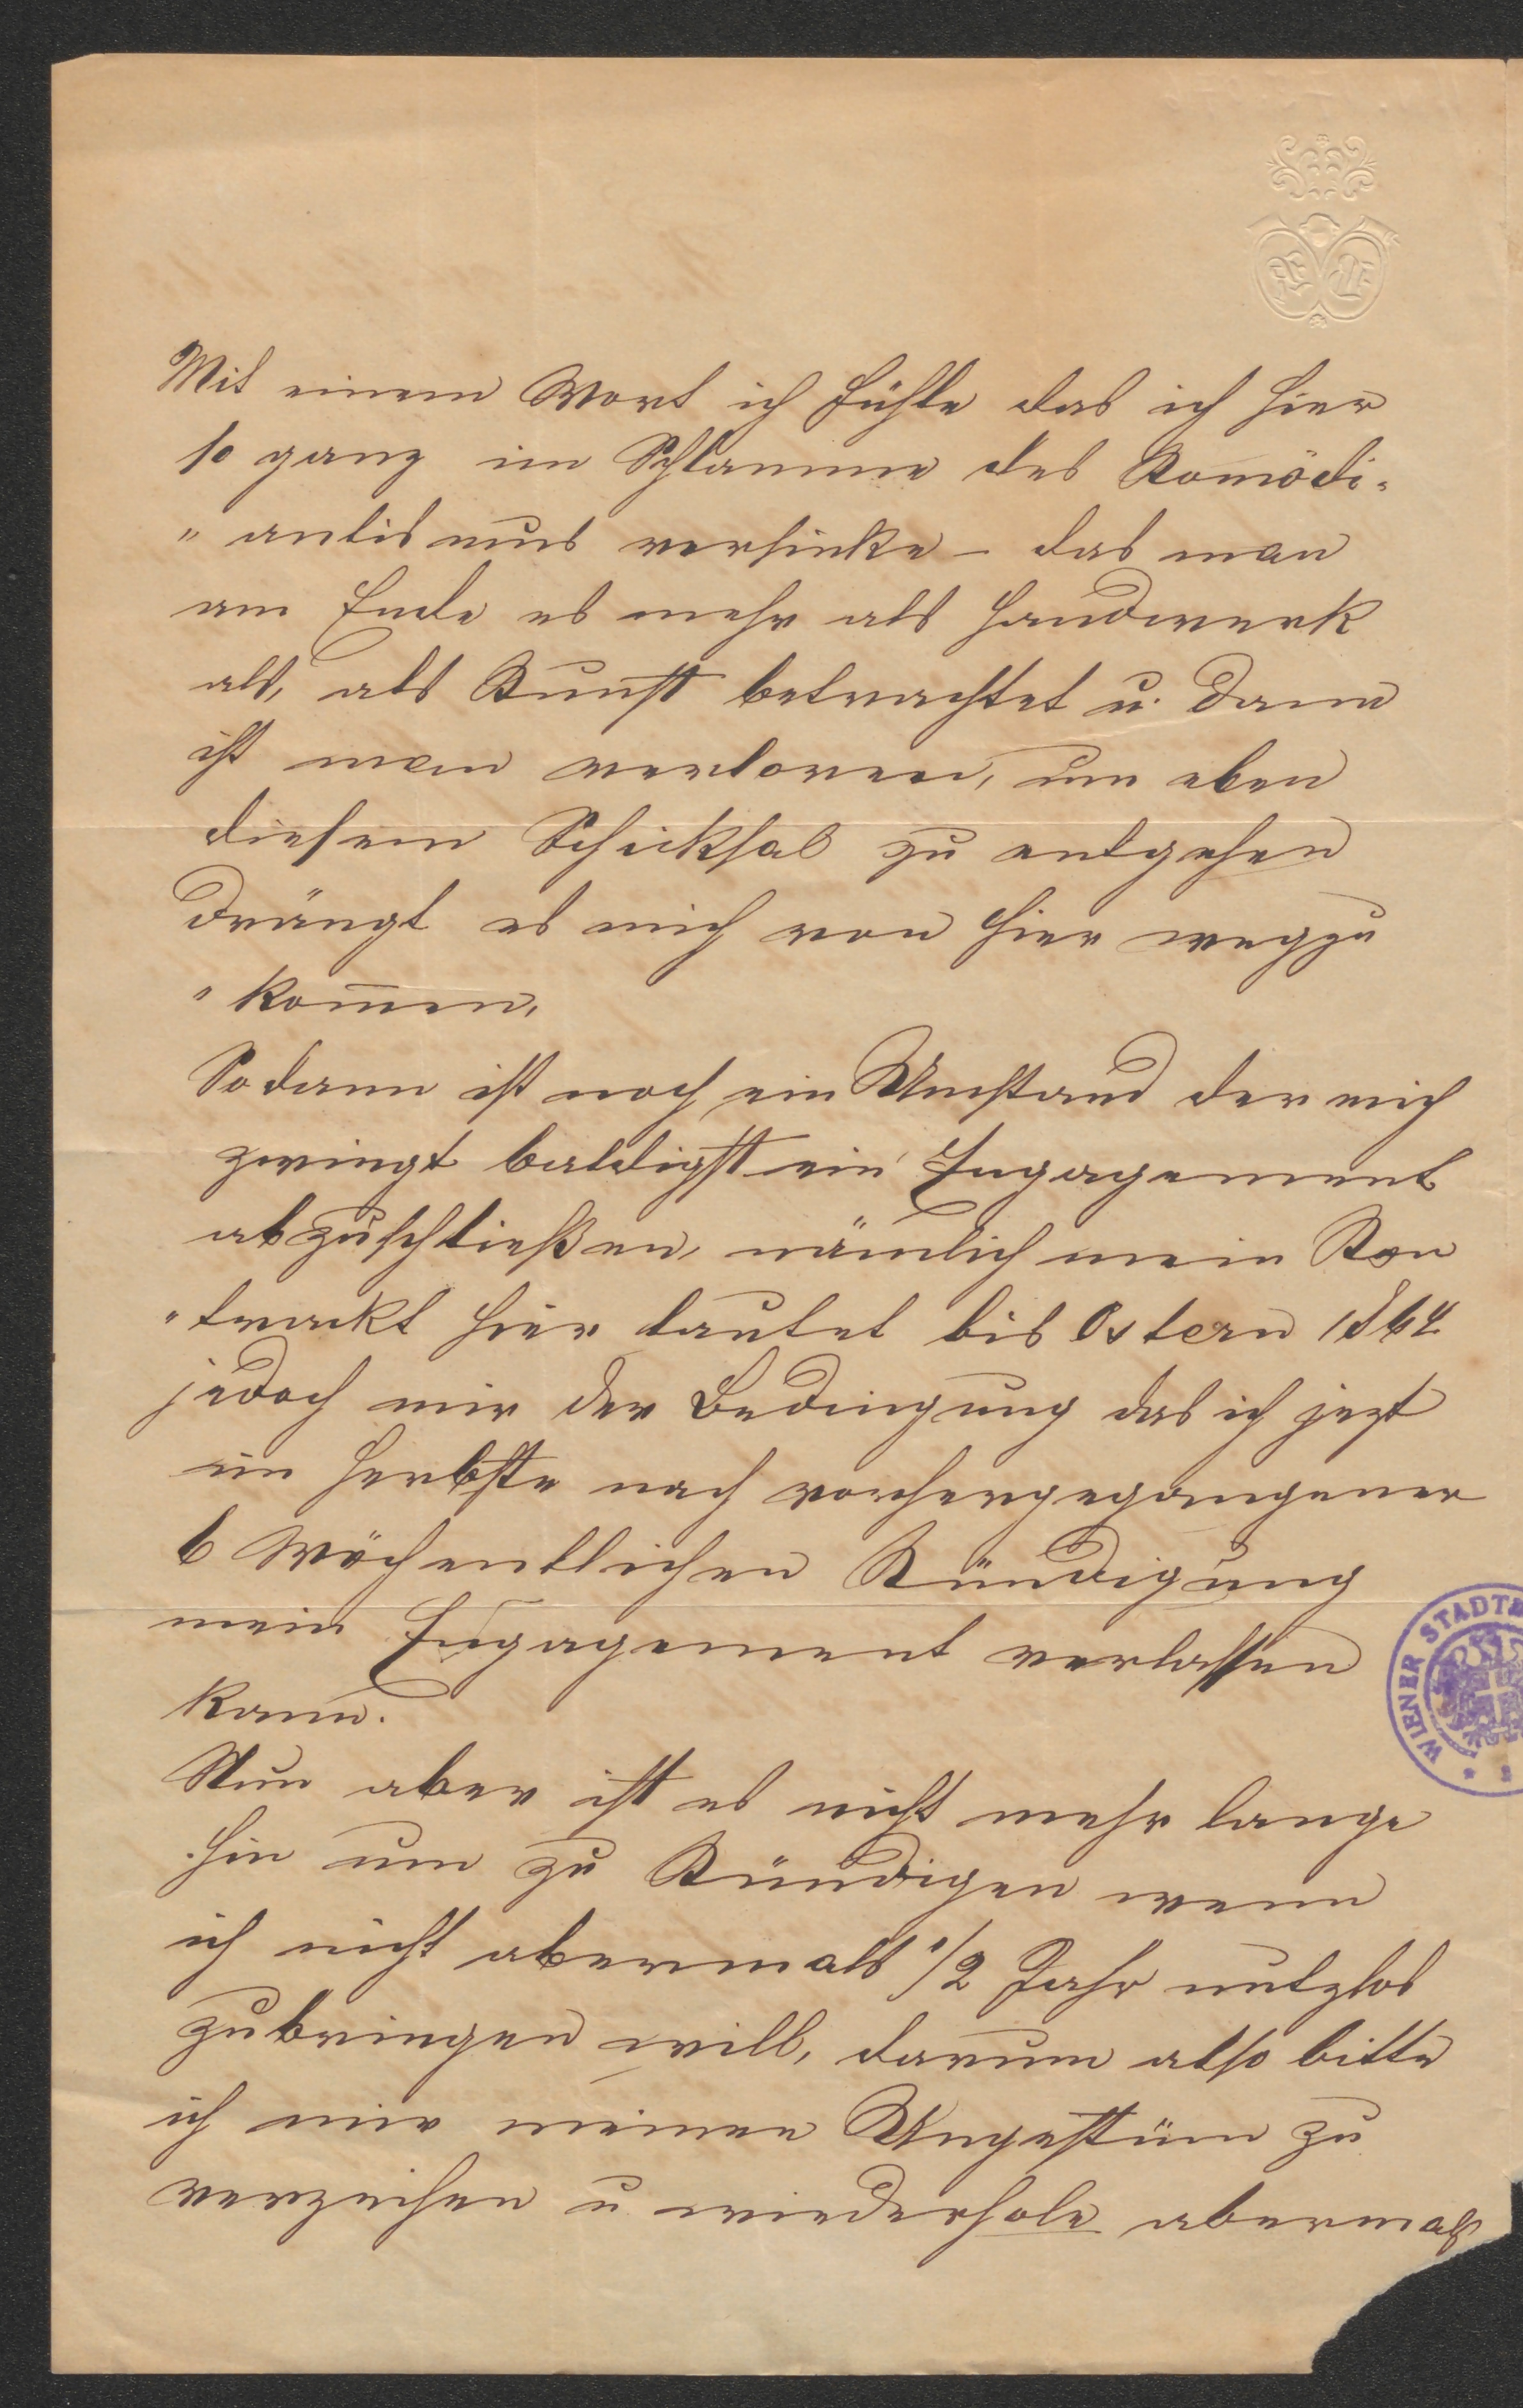 Mit einem Wort ich fühle das ich hier
so ganz im Schlamme des Komödi-
"antismus versinke - das man
am Ende es mehr als Handwerk
als, als Kunst betrachtet u. dann
ist man verloren, um eben
diesem Schicksal zu entgehen
drängt es mich von hier wegzu
"kom̅en,
Sodann ist noch ein Umstand der mich
zwingt baldigst ein Engagement
abzuschließen, nämlich mein Kon
"trackt hier lautet bis Ostern 1864
jedoch mir der Bedingung das ich jezt
im Herbste nach vorhergegangener
6 wöchentlichen Kündigung
mein Engagement verlassen
kann.
Nun aber ist es nicht mehr lange
hin um zu Kündigen wenn
ich nicht abermals 1/2 Jahr nutzlos
zubringen will, darum also bitte
ich mir meinen Ungestüm zu
verzeihen u wiederhole abermals
WIENER STADT